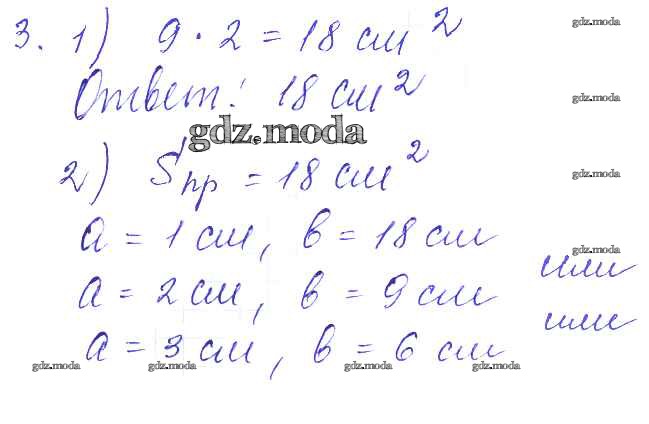 3. 1) 9 · 2 = 18 см² gdz.moda
Ответ: 18 см² gdz.moda
gdz.moda
2) Sпр = 18 см² gdz.moda
a = 1 см, в = 18 см gdz.moda
или
a = 2 см, в = 9 см
или
a = 3 см, в = 6 см
gdz.moda gdz.moda gdz.moda gdz.moda